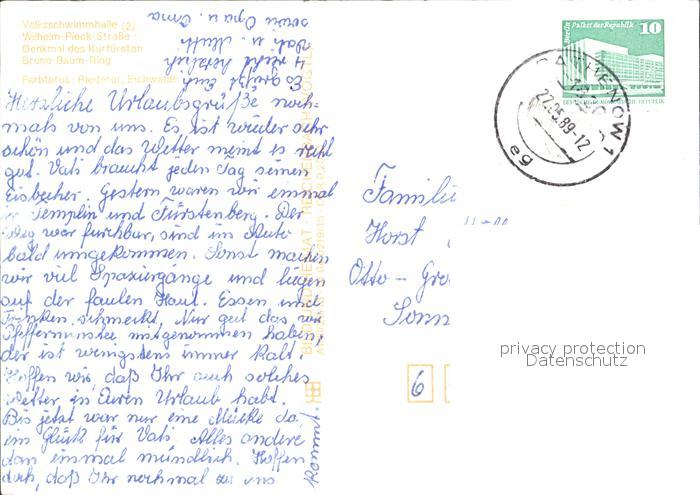 Volksschwimmhalle (2)
Wilhelm-Pieck-Straße
Denkmal des Kurfürsten
Bruno-Baum-Ring
Farbfotos: Riederer, Eichwalde
Herzliche Urlaubsgrüße noch-
mals von uns. Es ist wieder sehr
schön und das Wetter meint es recht
gut. Vati braucht jeden Tag seinen
Eisbecher. Gestern waren wir einmal
in Templin und Fürstenberg. Der
Weg war furchbar, sind im Auto
bald umgekommen. Sonst machen
wir viel Spaziergänge und liegen
auf der faulen Haut. Essen und
Trinken schmeckt. Nur gut das wir
Pfefferminztee mitgenommen haben,
der ist wenigstens immer kalt.
Hoffen wir, daß Ihr auch solches
Wetter in Euren Urlaub habt.
Bis jetzt war nur eine Mücke da,
ein Glück für Vati. Alles andere
dan einmal mündlich. Hoffen
doch, daß Ihr nochmal zu uns
kommt.
Es grüßt Euch
recht herzlich
Vati u. Mutti
sowie Opa u. Oma
Berlin Palast der Republik
10
DEUTSCHE DEMOKRATISCHE REPUBLIK
RATHENOW 1
22.05.89-12
eg
Familie
Horst
Otto - Gro
Sonn
6
privacy protection
Datenschutz